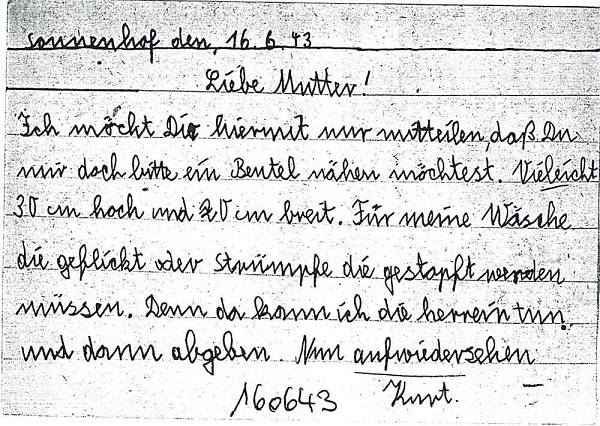 Sonnenhof den, 16.6.43
Liebe Mutter!
Ich möcht Die hiermit nur mitteilen, daß Du
mir doch bitte ein Beutel nähen möchtest. Vieleicht
30 cm hoch und 20 cm breit. Für meine Wäsche
die geflickt oder Strümpfe die gestopft werden
müssen. Denn da kann ich die herrein tun.
und dann abgeben Nun aufwiedersehen
160643 Kurt.